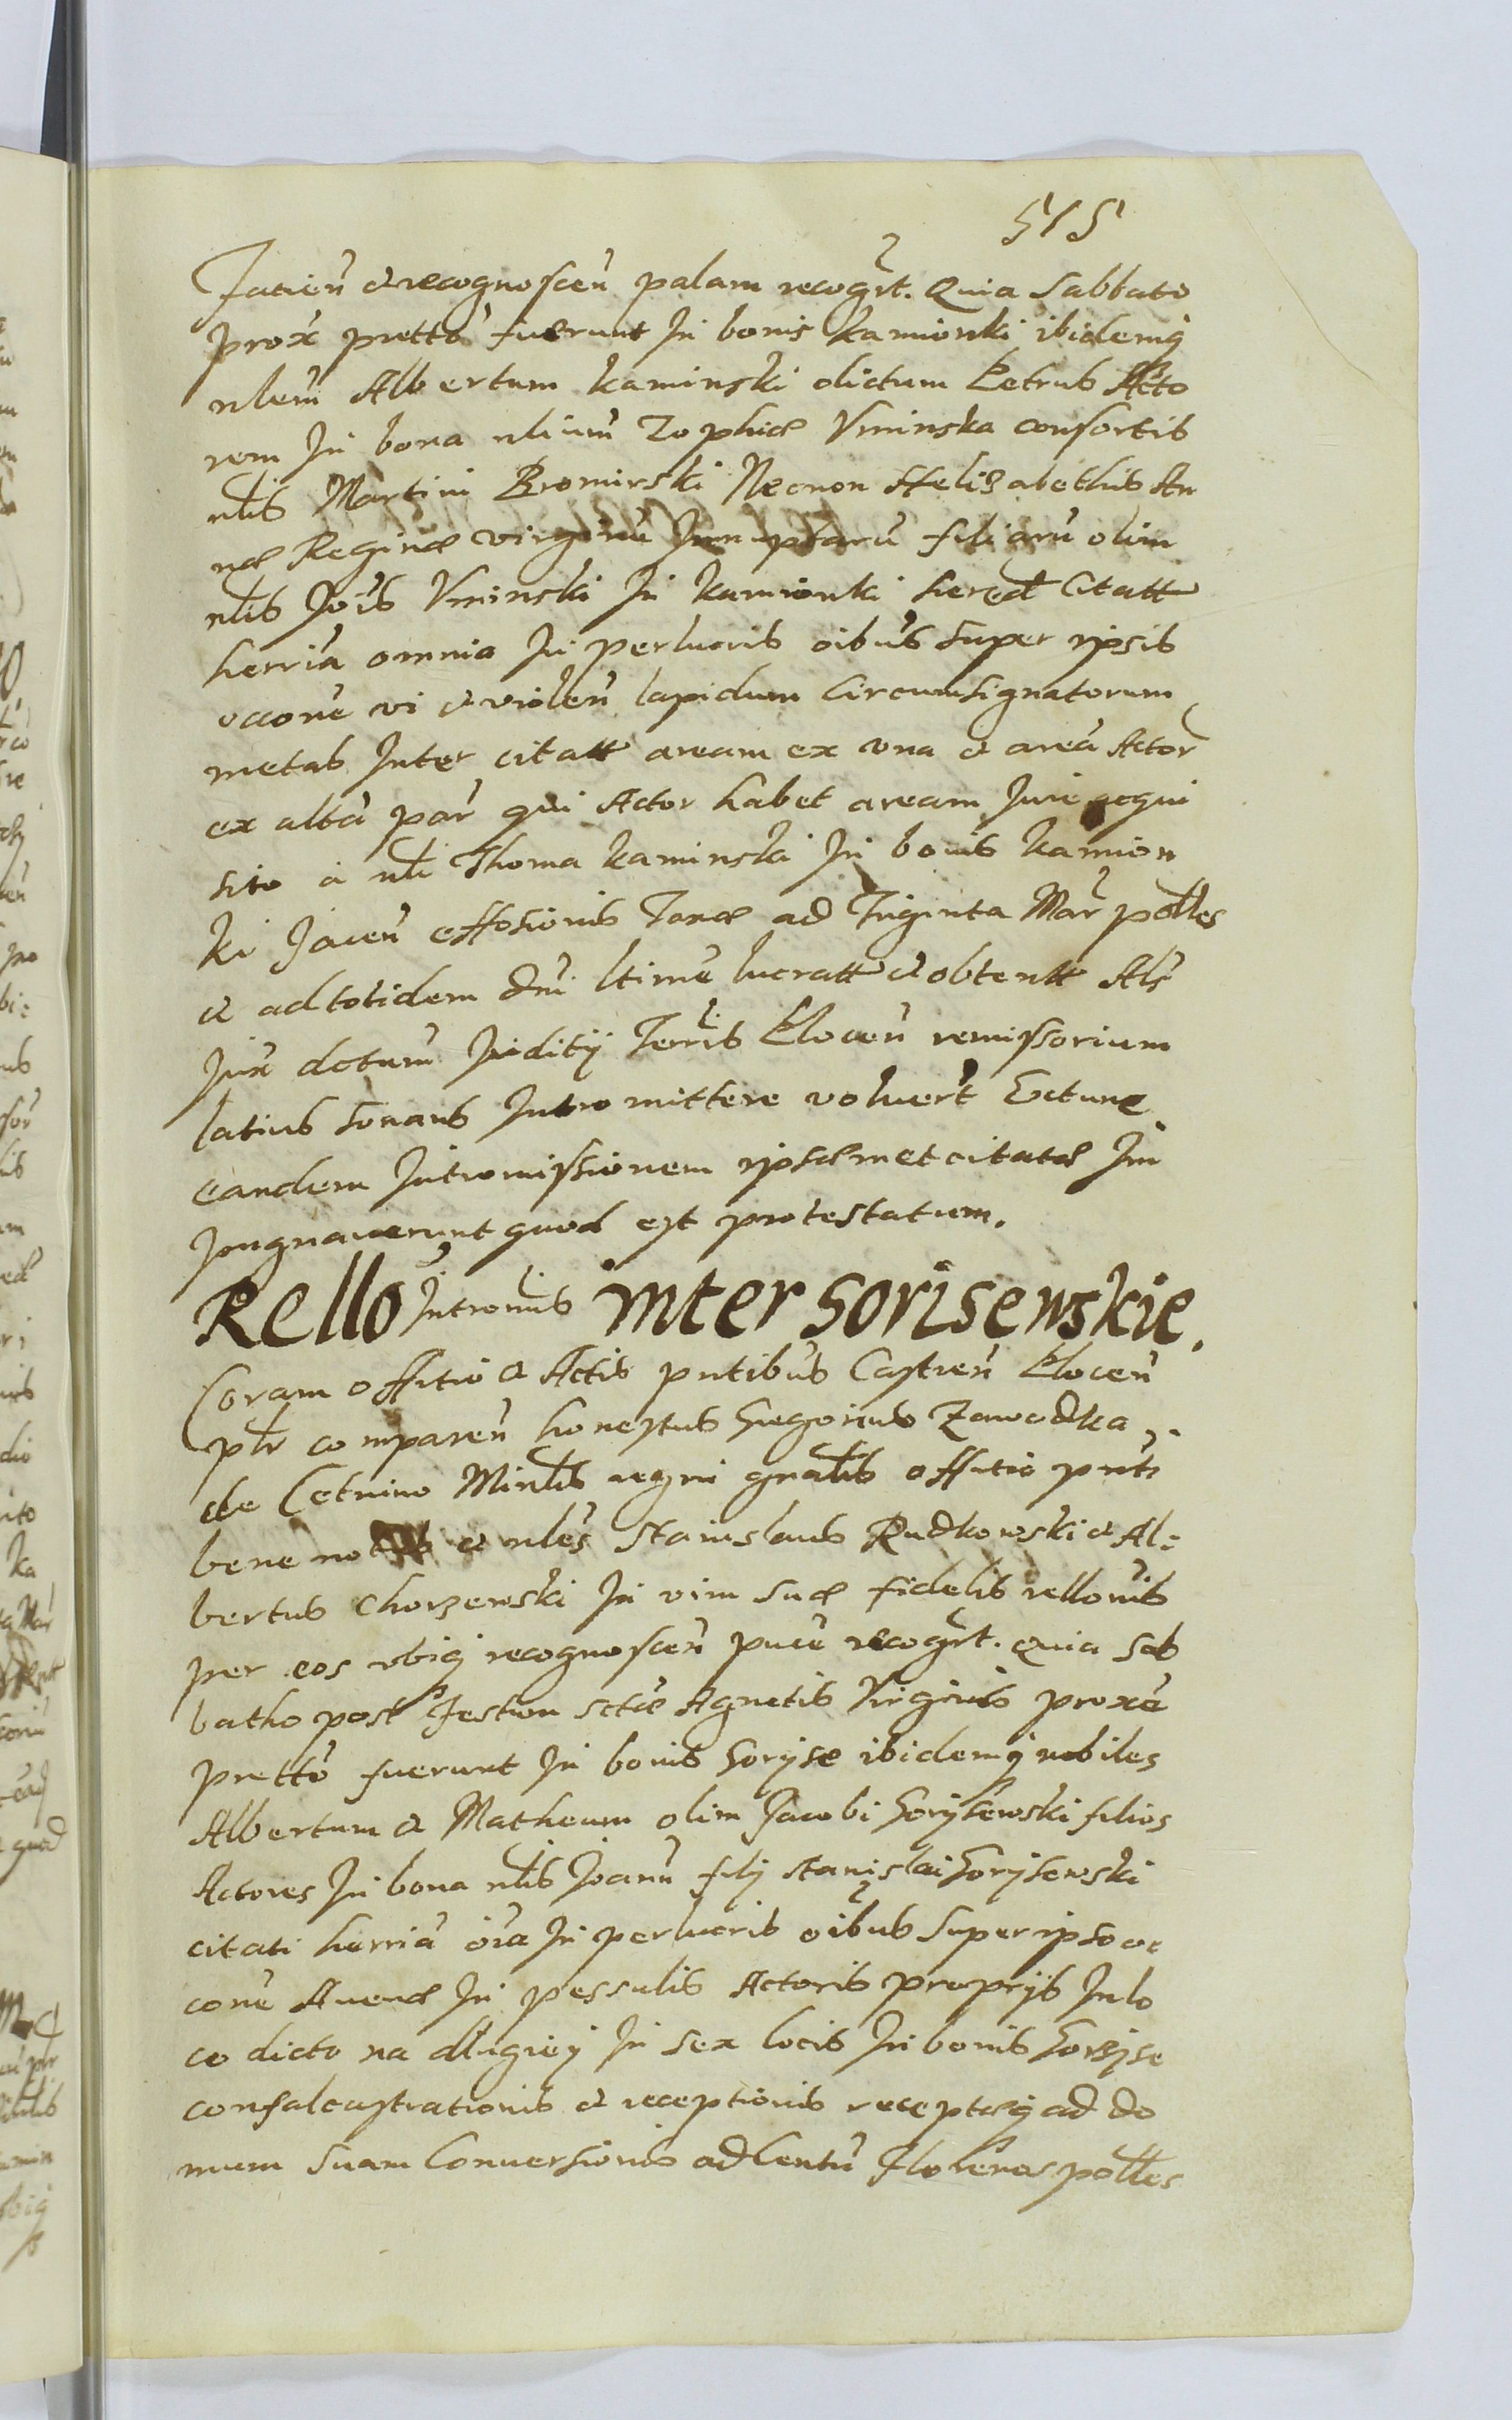 515
Facień et recognoscen̄ palam recogrt. Quia Sabbato
prox prettō fuerunt In bonis Kamionki ibidemq
nlem Albertum Kaminski dictum Petrus Acto
rem In bona nlium Zophiæ Vminska consortis
nlis Martini Bromirski Necnon Helizabethis An
næ Reginæ virginū Innuptarū filiarū olim
nlis Jois Vminski In Kamionki hered Citatt
herria omnia In perlucris oibus super ipsis
occone vi et violen̄ lapidum Circumsignatorum
metas Inter citatt aream ex vna et areā Actor
ex alta par qui Actor habet aream Jure acqui
sito a nli Thoma Kaminski In bonis Kamion
ki Jacen̄ effosionis Tanæ ad Triginta Mar polles
et ad totidem dni ltime lucratt et obtentt Als
Jux dctum Juditij Terris Plocen̄ remissorium
latius sonans Intromittere voluert Et tunc
eandem Intromissionem ipsæmet citatæ Im
pugnauerunt quod est protestatum.
Rello Intromis inter Gorisewskie.
Coram offitio et Actis pntibus Castren̄ Plocen̄
plr comparen̄ honestus Gregorius Zawodka
de Cetnino Minlis regni gnalis offitio pnts
bene notus et nles Stanislaus Rudkowski et Al:
bertus Chorzewski In vim suæ fidelis rellonis
per eos vbiq recognoscen̄ puce recogrt. quia Sab
batho post festum sctæ Agnetis Virginis proxe
prettō fuerunt In bonis Goryse ibidemq nobiles
Albertum et Matheum olim Jacobi Gorysewski filios
Actores In bona nlis Joann filij Stanislai Gorysewski
citati herria oia In perlucris oibus super ipso oc
cone Auenæ In pessulis Actoris proprijs In lo
co dicto na długiey In sex locis In bonis Goryse
confalcastrationis et receptionis receptæq ad do
mum suam Conuersionis ad Centū Florenos polles